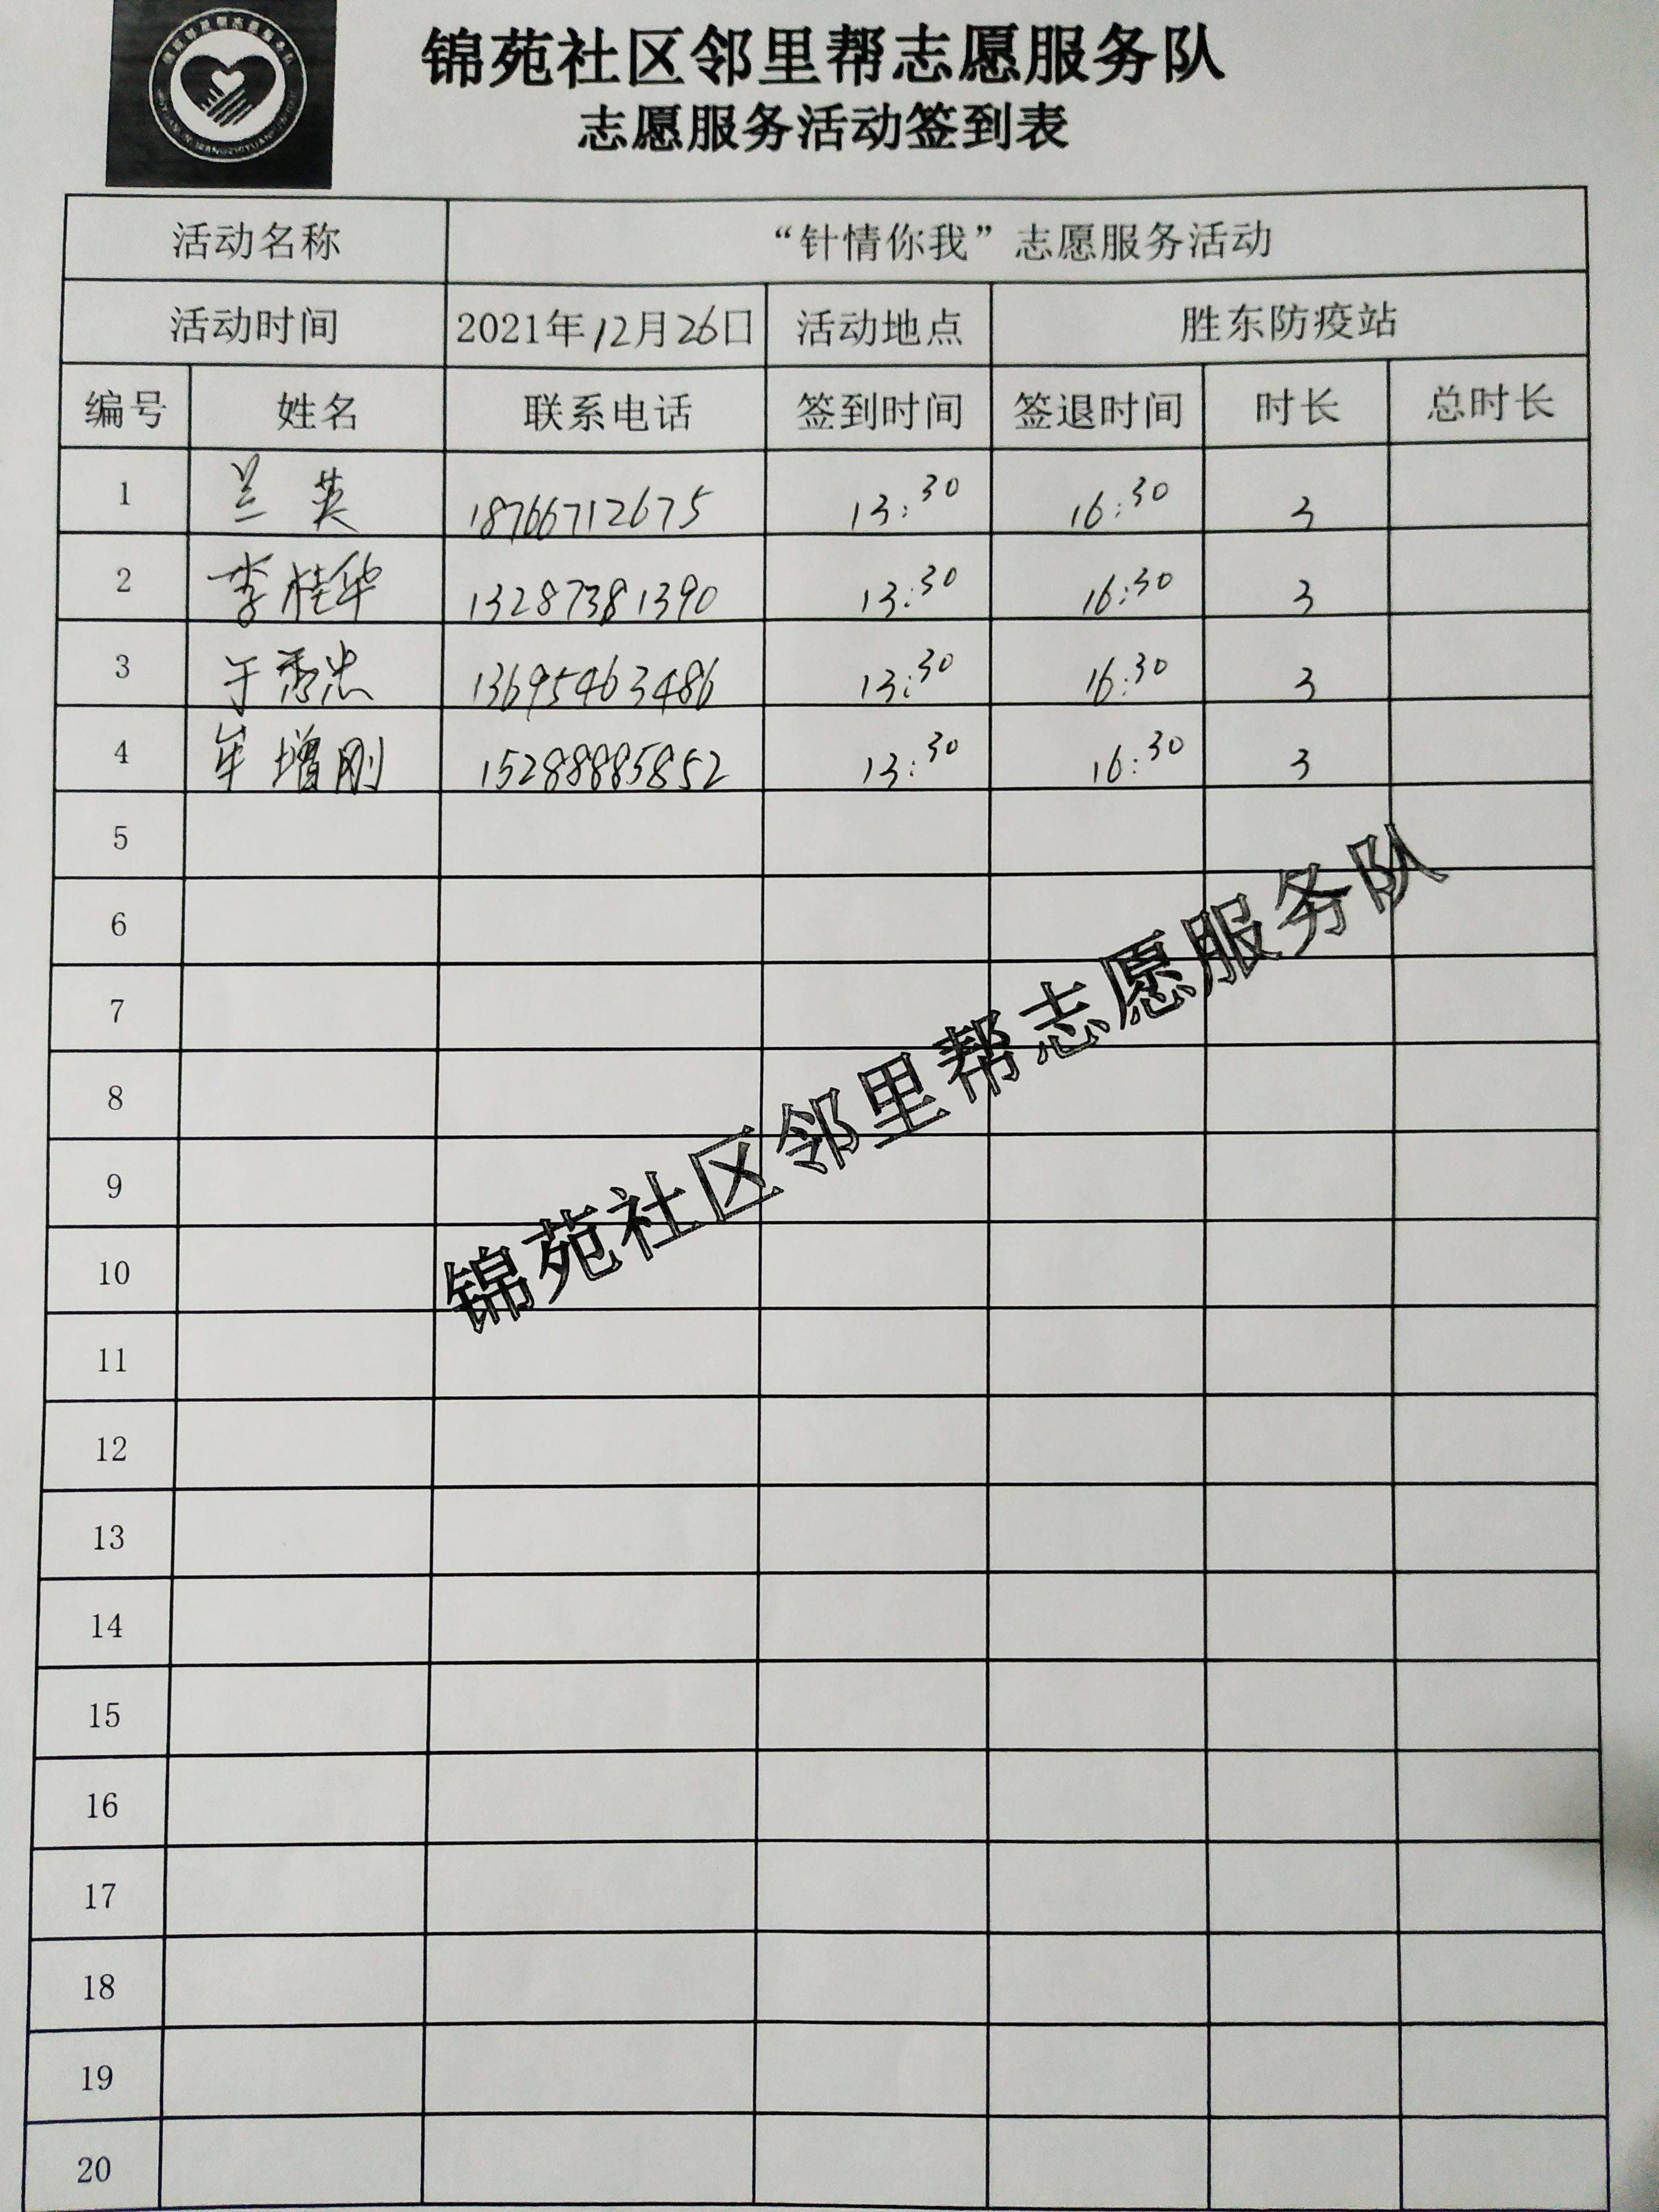 锦苑社区邻里帮志愿服务队
志愿服务活动签到表
活动名称 “针情你我”志愿服务活动
活动时间 2021年12月26日 活动地点 胜东防疫站
编号 姓名 联系电话 签到时间 签退时间 时长 总时长
1 兰英 18766712675 13:30 16:30 3
2 李桂华 13287381390 13:30 16:30 3
3 于秀忠 13695463486 13:30 16:30 3
4 牟增刚 15288885852 13:30 16:30 3
5
6
7
8
9
10
锦苑社区邻里帮志愿服务队
11
12
13
14
15
16
17
18
19
20